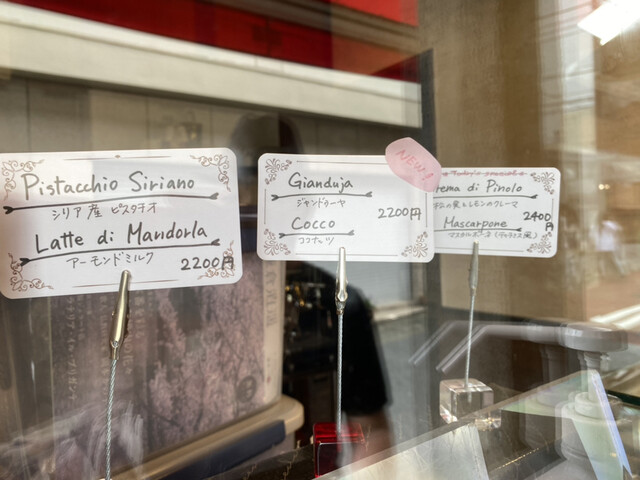 Pistacchio Siriano
シリア産 ピスタチオ
Latte di Mandorla
アーモンドミルク
2200円
NEW!
Gianduja
ジャンドゥーヤ
2200円
Cocco
ココナッツ
rema di Pinolo
の実&レモンのクレーマ
2400円
Mascarpone